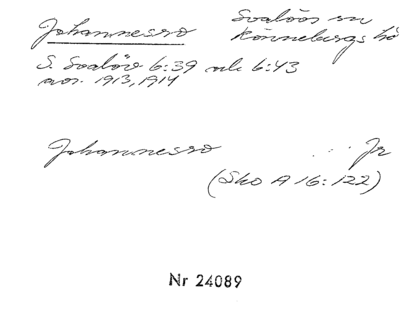 Johannesro Svalövs sn
Rönnebergs hd
S. Svalöv 6:39 och 6:43
avs. 1913, 1914
Johannesro Jr
(Sko A 16:122)
Nr 24089